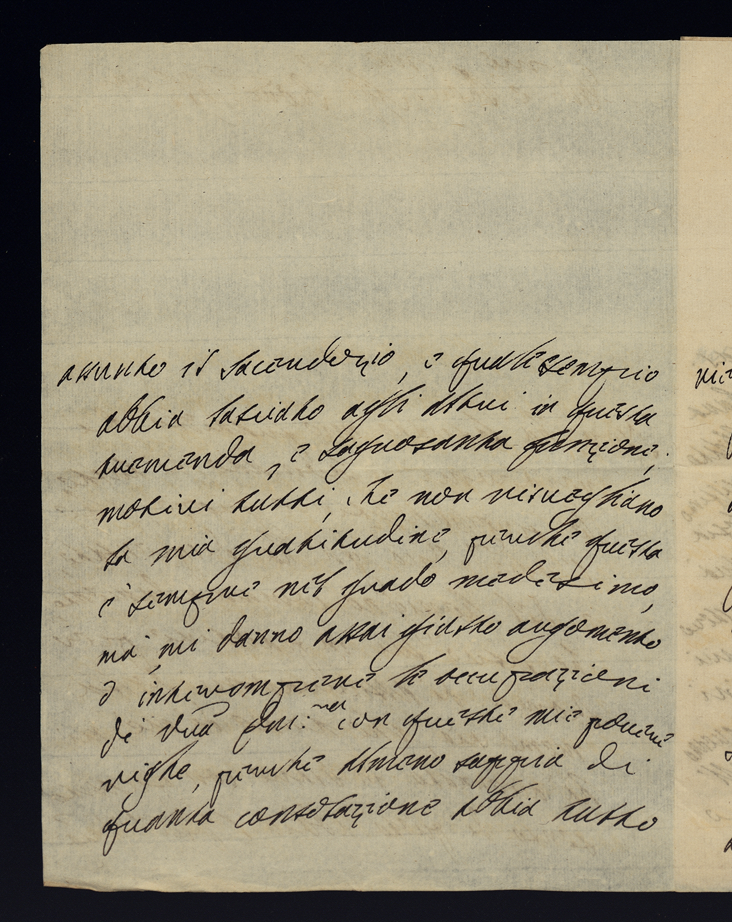 assunto il Sacerdozio, e qual'esempio
abbia lasciato agli altri in questa
tremenda, e sagrosanta funzione,
motivi tutti, che non risvegliano
la mia gratitudine, perche questa
è sempre nel grado medesimo,
ma mi danno assai giusto argomento
d'interrompere le occupazioni
di Vra Em:za con queste mie povere
righe, perche almeno sappia di
quanta consolazione abbia tutto